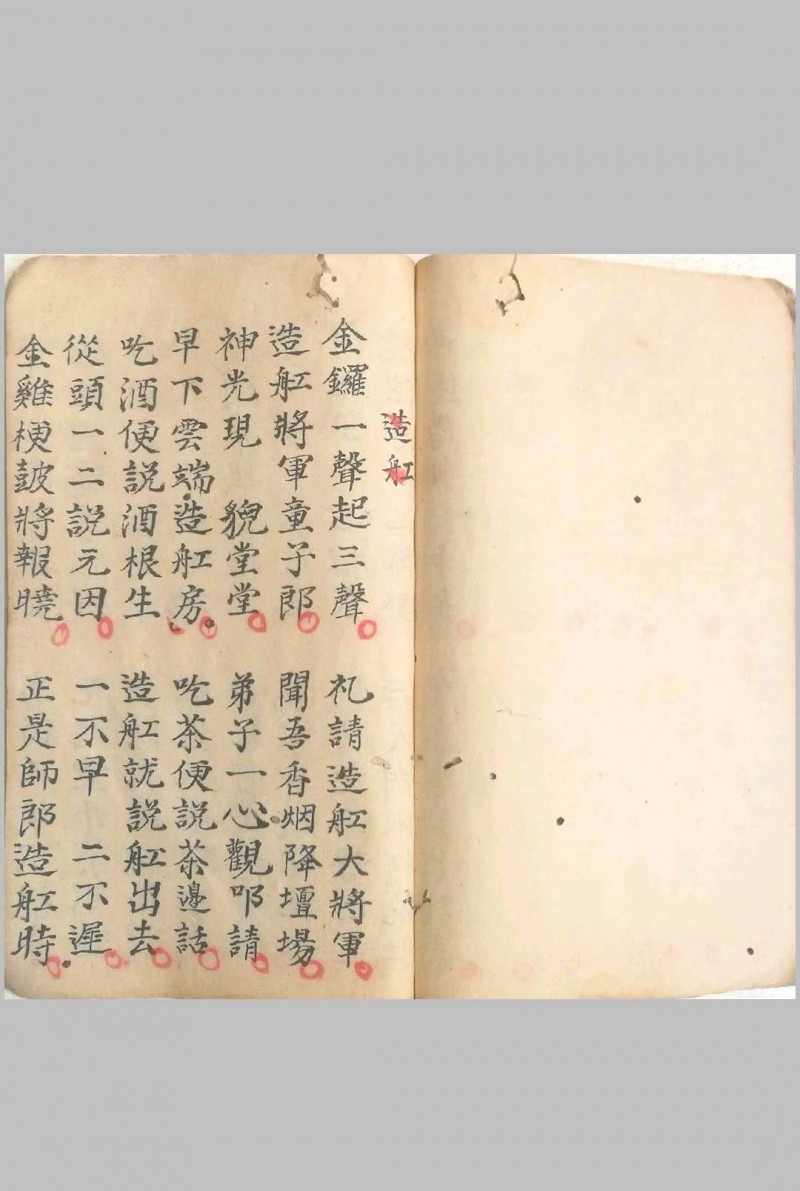 造舡
金鑼一聲起三聲 礼請造舡大將軍
造舡將軍童子郎 聞吾香烟降壇場
神光現 貌堂堂 弟子一心觀叩請
早下雲端造舡房 吃茶便說茶邊話
吃酒便說酒根生 造舡就說舡出去
從頭一二說元因 一不早 二不遲
金雞梗皷將報曉 正是師郎造舡時